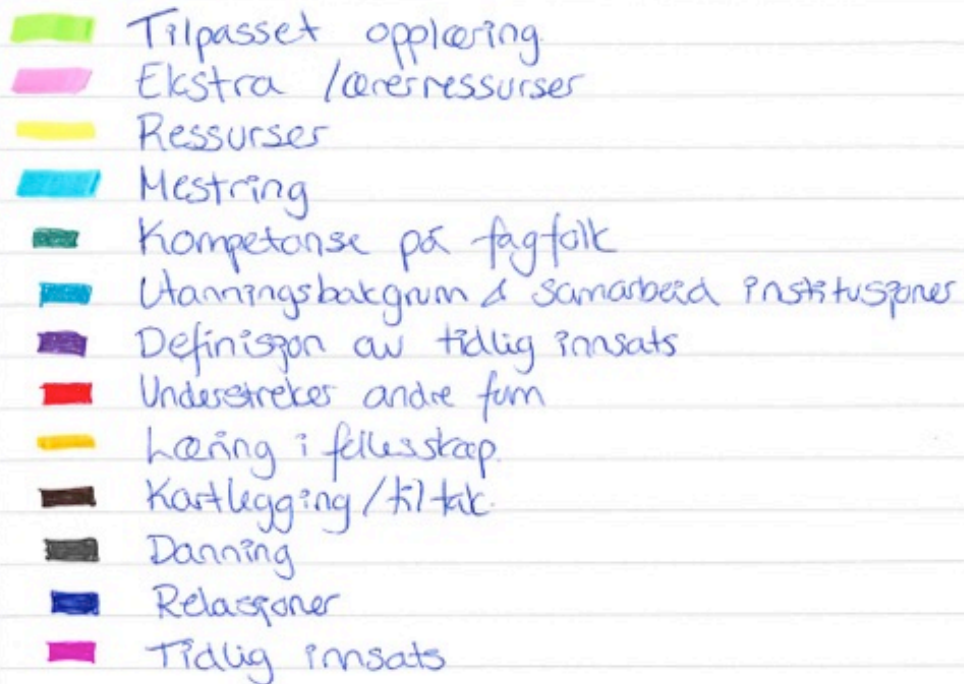 Tilpasset opplæring
Ekstra lærerressurser
Ressurser
Mestring
Kompetanse på fagfolk
Utanningsbakgrunn & samarbeid institusjoner
Definisjon av tidlig innsats
Understreker andre funn
Læring i fellesskap.
Kartlegging/tiltak.
Danning
Relasjoner
Tidlig innsats